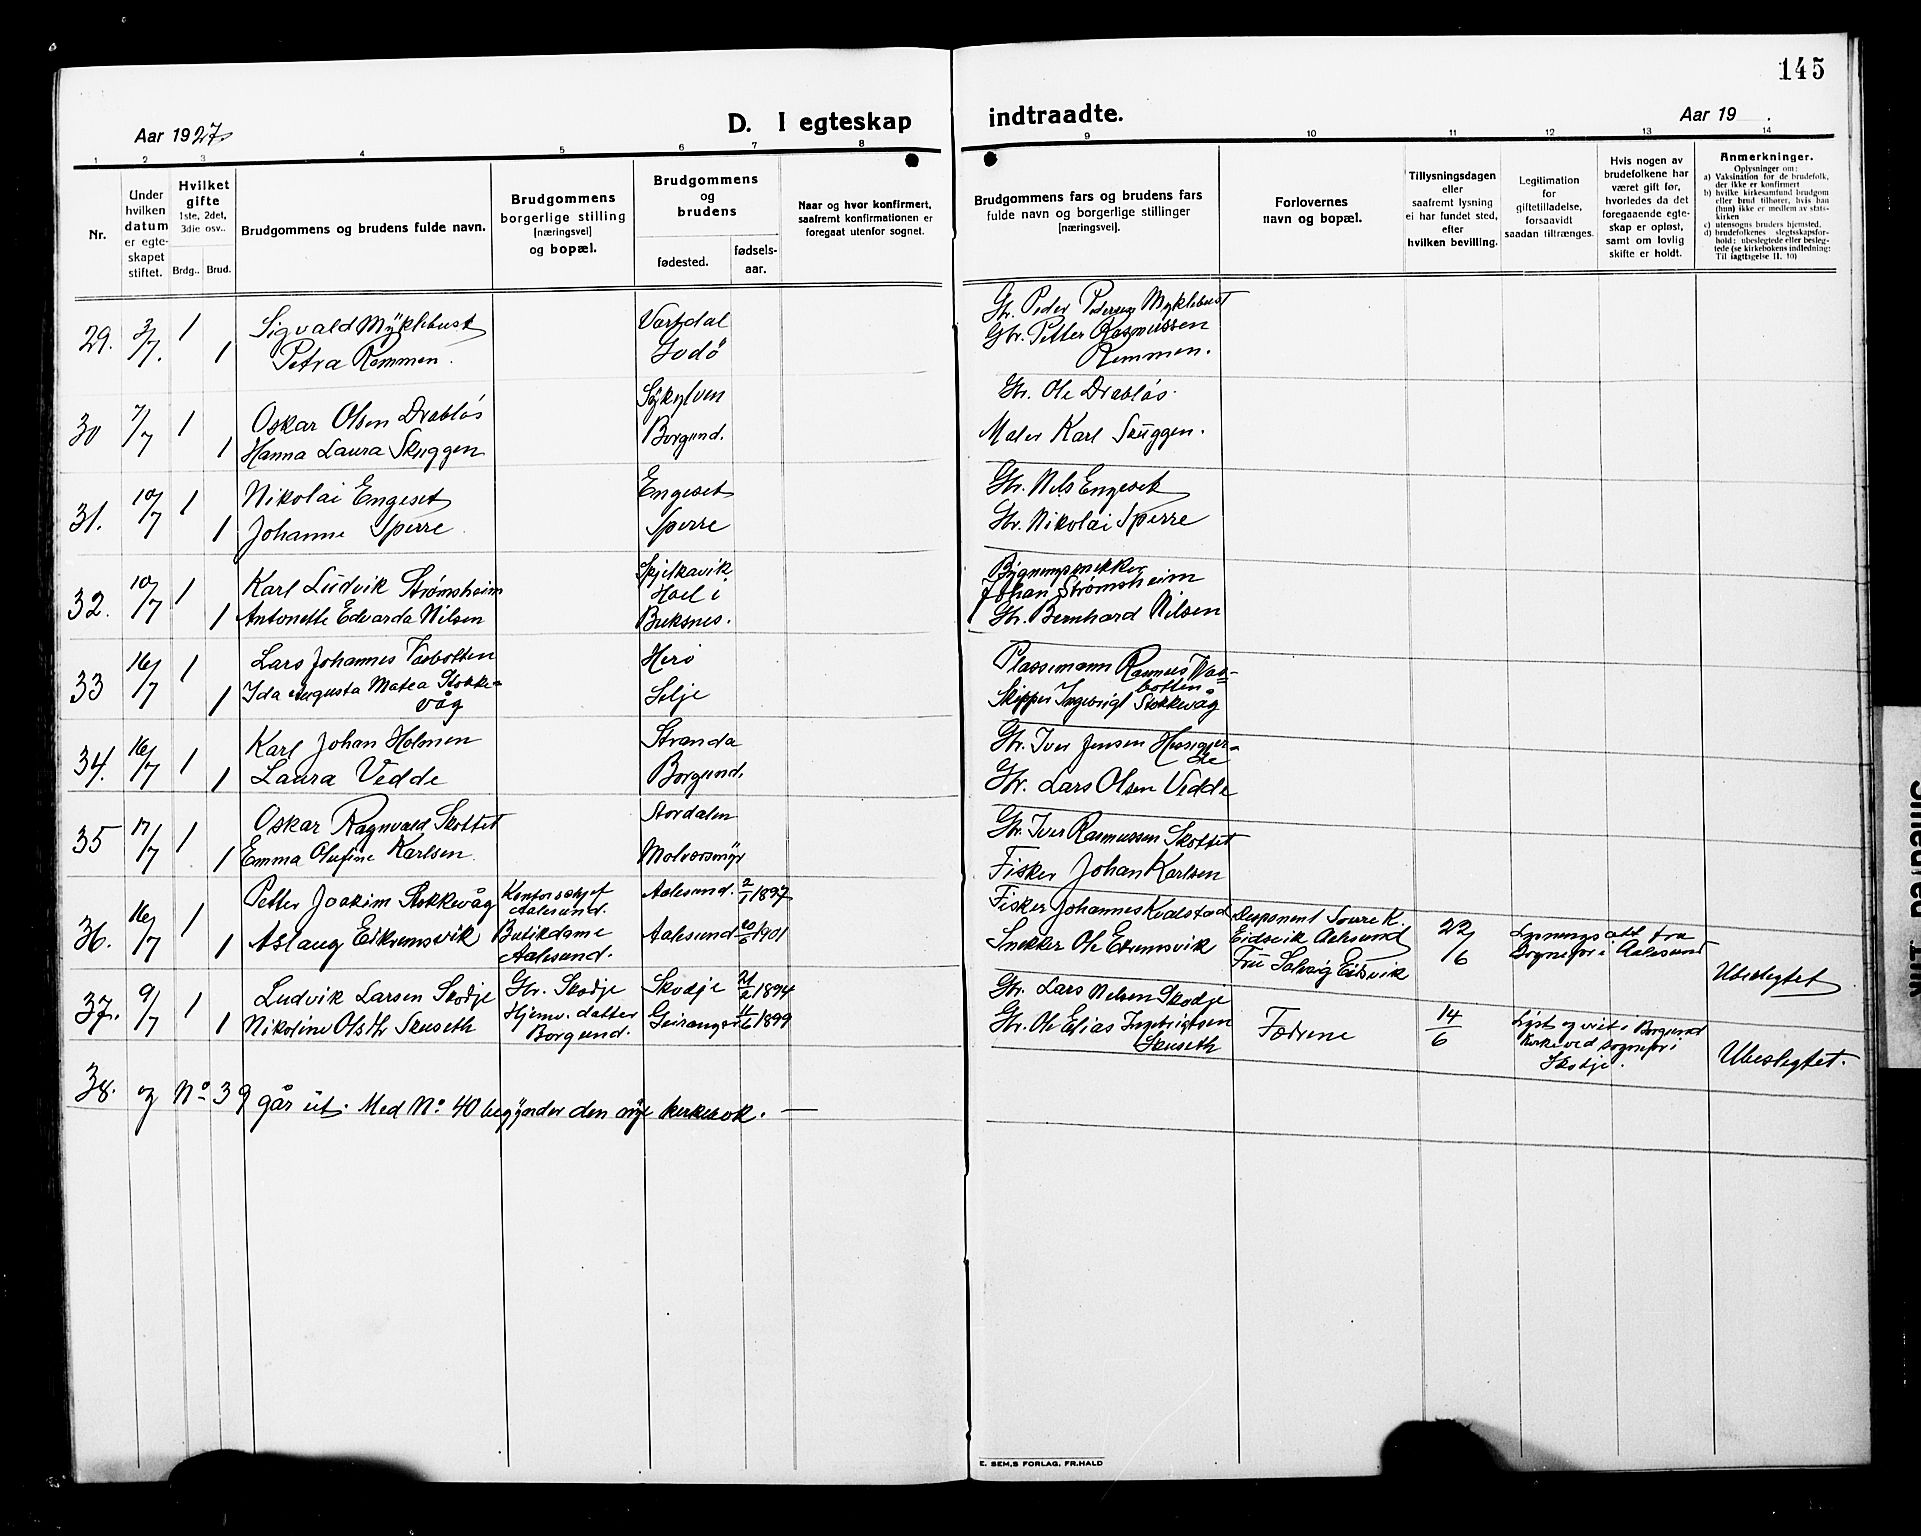 145
Aar 1927
D. I egteskap indtraadte.
Aar 19 .
1 2 3 4 5 6 7 8 9 10 11 12 13 14
Nr.
Under hvilken datum er egteskapet stiftet.
Hvilket gifte 1ste, 2det, 3die osv..
Brdg.. Brud.
Brudgommens og brudens fulde navn.
Brudgommens borgerlige stilling [næringsvei] og bopæl.
Brudgommens og brudens
fødested.
fødselsaar.
Naar og hvor konfirmert, saafremt konfirmationen er foregaat utenfor sognet.
Brudgommens fars og brudens fars fulde navn og borgerlige stillinger [næringsvei].
Forlovernes navn og bopæl.
Tillysningsdagen eller saafremt lysning ei har fundet sted, efter hvilken bevilling.
Legitimation for giftetilladelse, forsaavidt saadan tiltrænges.
Hvis nogen av brudefolkene har været gift før, hvorledes da det foregaaende egteskap er opløst, samt om lovlig skifte er holdt.
Anmerkninger.
Oplysninger om:
a) Vaksination for de brudefolk, der ikke er konfirmert
b) hvilke kirkesamfund brudgom eller brud tilhører, hvis han (hun) ikke er medlem av statskirken
c) utensogns bruders hjemsted.
d) brudefolkenes slegtsskapsforhold: ubeslegtede eller beslegtede (se kirkebokens indledning: Til iagttagelse II. 10)
29. 3/7. 1 Sigvald Myklebust Vartdal Gbr. Peder Pedersen Myklebust
1 Petra Remmen. Godö Gbr. Petter Rasmussen
Remmen.
30 7/7 1 Oskar Olsen Drabløs Sykylven Gbr. Ole Drabløs.
1 Hanna Laura Skuggen Borgund. Maler Karl Skuggen.
31. 10/7 1 Nikolai Engeset Engeset Gbr. Nils Engeset
1 Johanne Sperre Sperre Gbr. Nikolai Sperre
32. 10/7 1 Karl Ludvik Strømsheim Spjelkavik Bygningssnekker
Johan Strømsheim
1 Antonette Edvarda Nilsen Hol i
Buksnes. Gbr. Bernhard Nilsen
33 16/7 1 Lars Johannes Vasbotten Herø Plassemann Rasmus Vas-
botten
1 Ida Augusta Matea Stokke-
våg Selje Skipper Ingebrigt Stokkevåg
34. 16/7 1 Karl Johan Holmen Stranda Gbr. Iver Jensen
1 Laura Vedde Borgund. Gbr. Lars Olsen Vedde
35 17/7 1 Oskar Ragnvald Skottet Stordalen Gbr. Iver Rasmussen Skottet
1 Emma Olufine Karlsen. Molværsmyr Fisker Johan Karlsen
36. 16/7 1 Petter Joakim Stokkevåg Kontorschef
Aalesund. Aalesund. 2/1 1897 Fisker Johannes Kvalstad Disponent Sevre K.
1 Aslaug Eikremsvik Butikdame
Aalesund. Aalesund 20/6 1901 Snekker Ole Ekremsvik Eidsvik Aalesund
Fru Solveig Eidsvik 22/6 Lysningsatt. fra
Sognepr. i Aalesund Ubeslegtet
37. 9/7 1 Ludvik Larsen Skodje Gbr. Skodje Skodje 21/2 1894 Gbr. Lars Nilsen Skodje
1 Nikoline Olsdtr Skuseth Hjemv. datter
Borgund. Geiranger 11/6 1899 Gbr. Ole Elias Ingebrigtsen
Skuseth Fædrene 14/6 Lyst og viet i Borgund
Kirke ved sognepr. i
Skodje. Ubeslegtet.
38. og No 39 går ut. Med No. 40 begynder den nye kirkebok. —
E. SEM,S FORLAG, FR.HALD